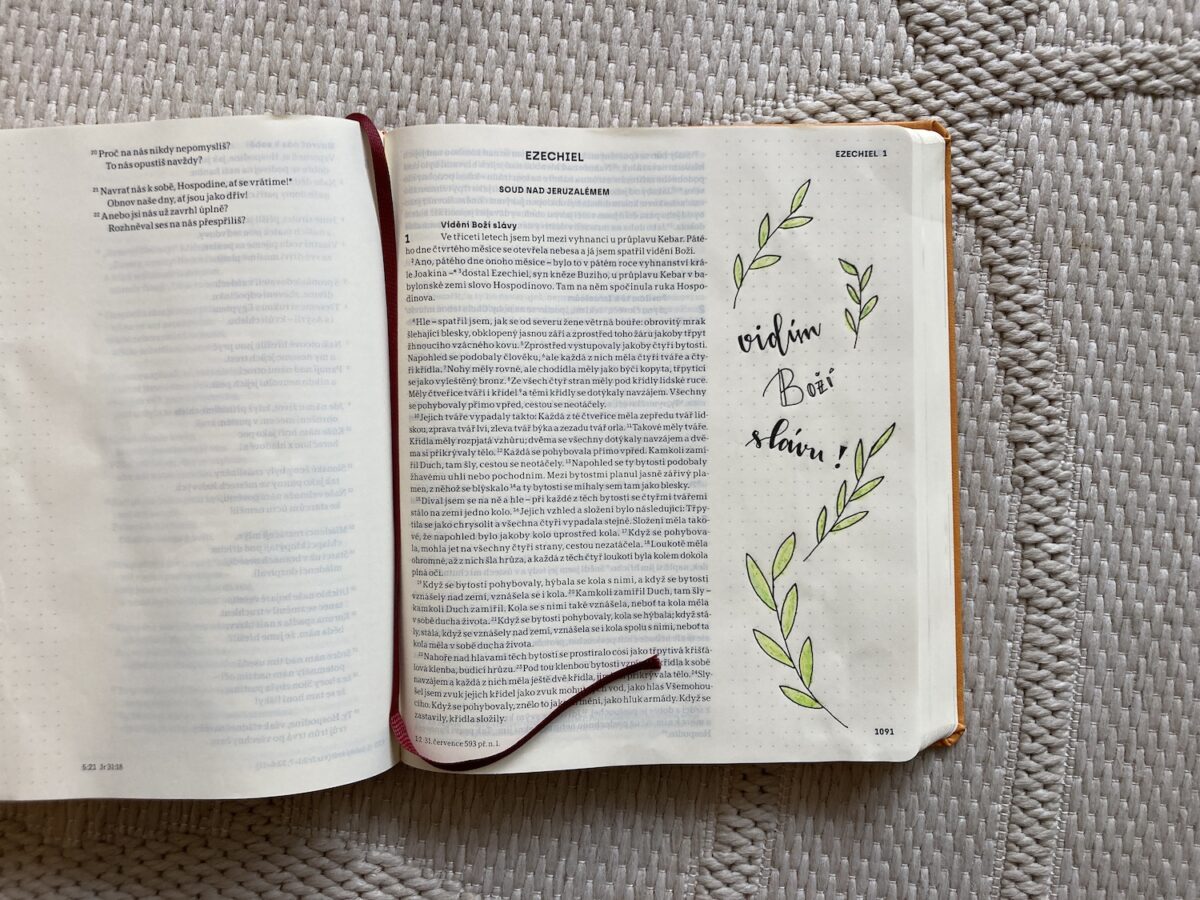 20 Proč na nás nikdy nepomyslíš?
To nás opustíš navždy?
21 Navrať nás k sobě, Hospodine, ať se vrátíme!*
Obnov naše dny, ať jsou jako dřív!
22 Anebo jsi nás už zavrhl úplně?
Rozhněval ses na nás přespříliš?
5:21 Jr 31:18
EZECHIEL
EZECHIEL 1
SOUD NAD JERUZALÉMEM
Vidění Boží slávy
1 Ve třiceti letech jsem byl mezi vyhnanci u průplavu Kebar. Páté-
ho dne čtvrtého měsíce se otevřela nebesa a já jsem spatřil vidění Boží.
2 Ano, pátého dne onoho měsíce – bylo to v pátém roce vyhnanství krá-
le Joakina –* 3 dostal Ezechiel, syn kněze Buziho, u průplavu Kebar v ba-
bylonské zemi slovo Hospodinovo. Tam na něm spočinula ruka Hospo-
dinova.
4 Hle – spatřil jsem, jak se od severu žene větrná bouře: obrovitý mrak
šlehající blesky, obklopený jasnou září a zprostřed toho žáru jakoby třpyt
žhnoucího vzácného kovu. 5 Zprostřed vystupovaly jakoby čtyři bytosti.
Napohled se podobaly člověku, 6 ale každá z nich měla čtyři tváře a čty-
ři křídla. 7 Nohy měly rovné, ale chodidla měly jako býčí kopyta, třpytící
se jako vyleštěný bronz. 8 Ze všech čtyř stran měly pod křídly lidské ruce.
Měly čtvero tváří i křídel 9 a těmi křídly se dotýkaly navzájem. Všechny
se pohybovaly přímo vpřed, cestou se neotáčely.
10 Jejich tváře vypadaly takto: Každá z té čtveřice měla zepředu tvář lid-
skou, zprava tvář lví, zleva tvář býka a zezadu tvář orla. 11 Takové měly tváře.
Křídla měly rozpjatá vzhůru; dvěma se všechny dotýkaly navzájem a dvě-
ma si přikrývaly tělo. 12 Každá se pohybovala přímo vpřed. Kamkoli zamí-
řil Duch, tam šly, cestou se neotáčely. 13 Napohled se ty bytosti podobaly
žhavému uhlí nebo pochodním. Mezi bytostmi planul jasně zářivý pla-
men, z něhož se blýskalo 14 a ty bytosti se míhaly sem tam jako blesky.
15 Díval jsem se na ně a hle – při každé z těch bytostí se čtyřmi tvářemi
stálo na zemi jedno kolo. 16 Jejich vzhled a složení bylo následující: Třpy-
tila se jako chrysolit a všechna čtyři vypadala stejně. Složení měla tako-
vé, že napohled bylo jakoby kolo uprostřed kola. 17 Když se pohybova-
la, mohla jet na všechny čtyři strany, cestou nezatáčela. 18 Loukotě měla
ohromné, až z nich šla hrůza, a každá z těch čtyř loukotí byla kolem dokola
plná očí.
19 Když se bytosti pohybovaly, hýbala se kola s nimi, a když se bytosti
vznášely nad zemí, vznášela se i kola. 20 Kamkoli zamířil Duch, tam šly –
kamkoli Duch zamířil. Kola se s nimi také vznášela, neboť ta kola měla
v sobě ducha života. 21 Když se pohybovaly, kola se hýbala; když stá-
ly, stála, když se vznášely nad zemí, vznášela se i kola spolu s nimi, neboť ta
kola měla v sobě ducha života.
22 Nahoře nad hlavami těch bytostí se prostíralo cosi jako třpytivá křišťá-
lová klenba, budící hrůzu. 23 Pod tou klenbou bytosti křídla k sobě
navzájem a každá z nich měla ještě dvě křídla, přikrývala tělo. 24 Sly-
šel jsem zvuk jejich křídel jako zvuk vod, jako hlas Všemohou-
cího. Když se pohybovaly, znělo to jako hřmění, jako hluk armády. Když se
zastavily, křídla složily.
1:2 31. července 593 př. n. l.
vidím
Boží
slávu!
1091